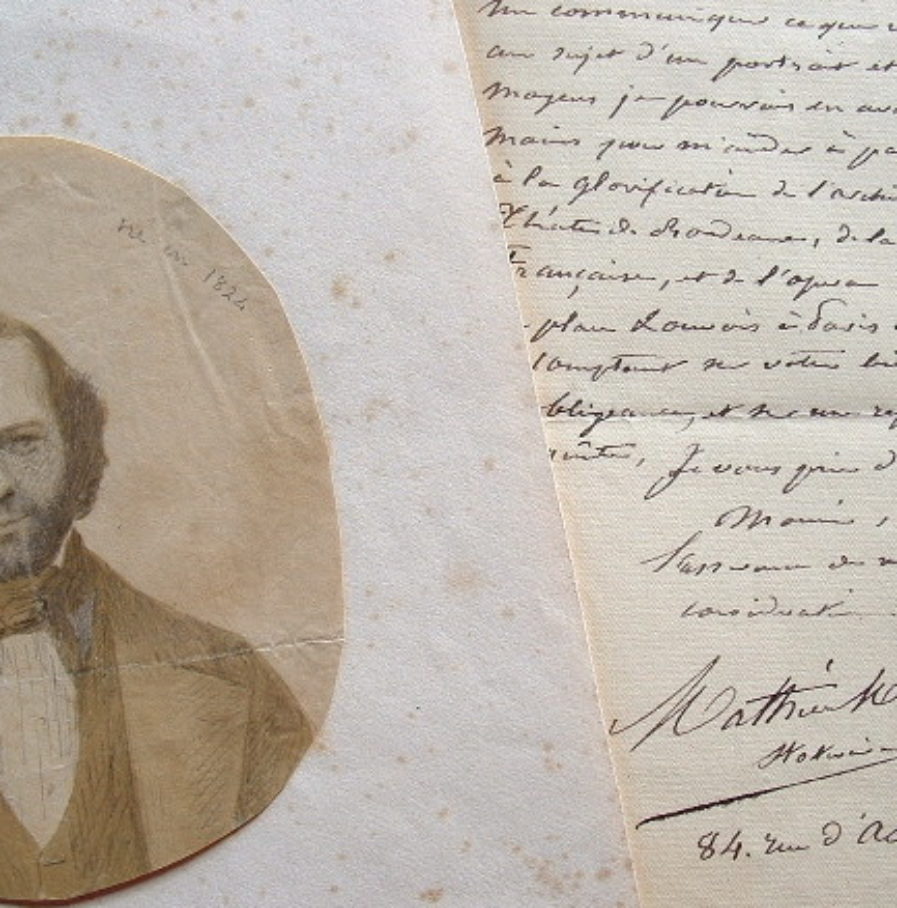 né en 1824
me communiquer ce que v
au sujet d'un portrait et
moyens je pourrais en avo
mains pour m'aider à pa
à la glorification de l'archi
Théâtre de Bordeaux, de la
Française, et de l'opéra
place Louvois à Paris
Comptant sur votre bi
obligeance, et sur une rép
Je vous prie d
l'assurance de m
considération
Mathieu
Notaire
84. rue d'A